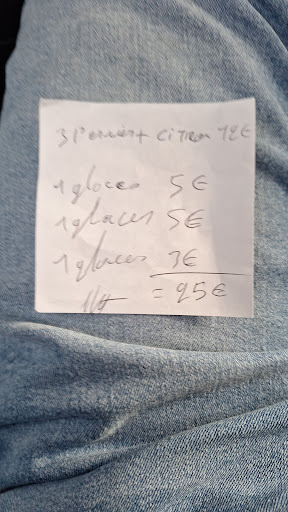 3 Perrier + citron 12€
1 glaces 5€
1 glaces 5€
1 glaces 3€
= 25€